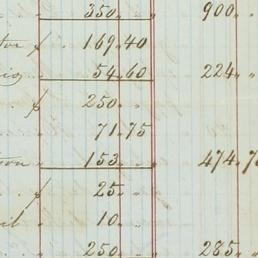 350 " 900 "
169 " 40
54 " 60 224 "
250 "
71 " 75
153 " " 474 " 7
25 "
10 "
250 " 285 "